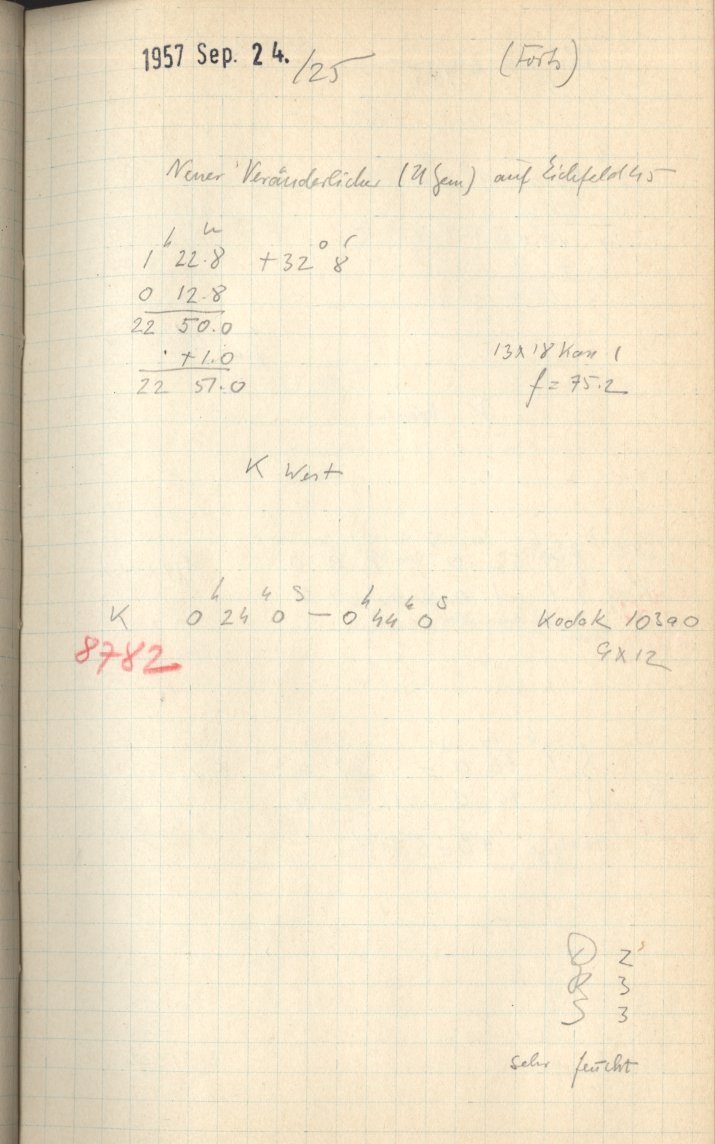 1957 Sep. 24./25 (Forts)
Neuer Veränderlicher (U Gem) auf Eichfeld 45
1ʰ 22.8ᵐ +32° 8′
0 12.8
22 50.0
+1.0
22 51.0
13x18 Kas 1
f = 75.2
K West
K 0ʰ 24ᵐ 0ˢ — 0ʰ 44ᵐ 0ˢ Kodak 10390
8782 9x12
D 2
R 3
S 3
sehr feucht